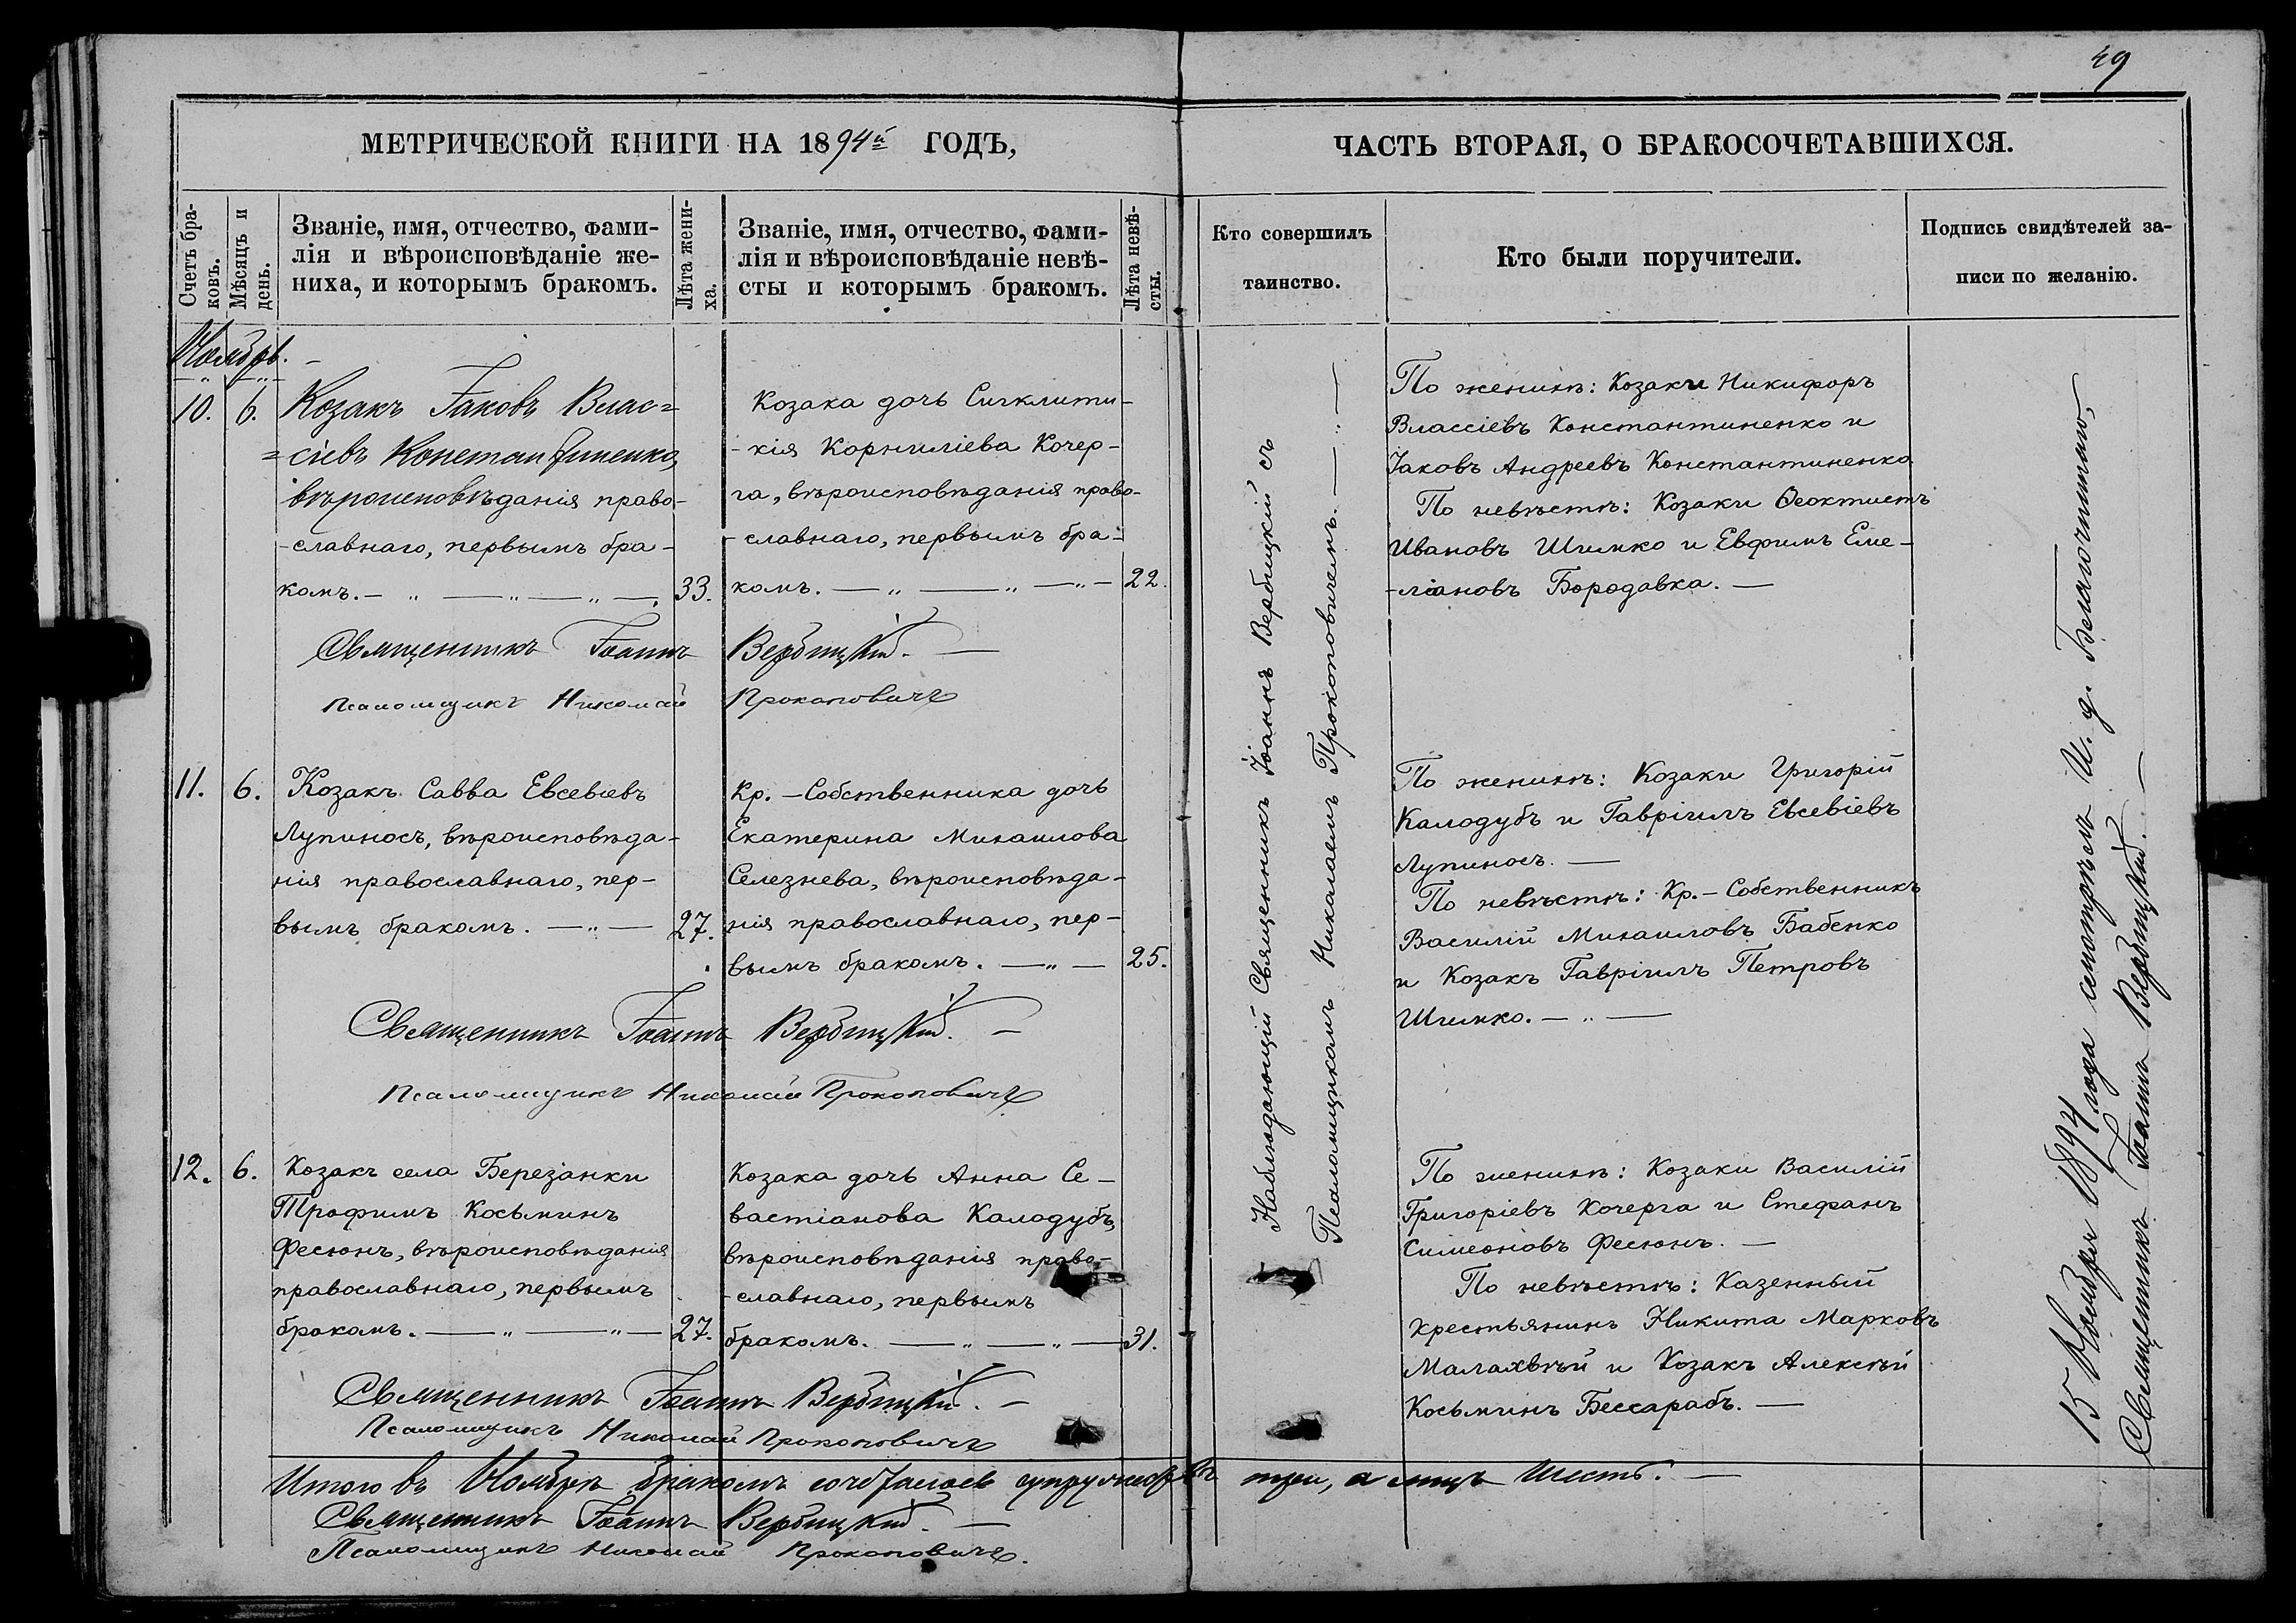 49
МЕТРИЧЕСКОЙ КНИГИ НА 1894й ГОДЪ,
ЧАСТЬ ВТОРАЯ, О БРАКОСОЧЕТАВШИХСЯ.
Счетъ бра-
ковъ.
Мѣсяцъ и
день.
Званіе, имя, отчество, фами-
лія и вѣроисповѣданіе же-
ниха, и которымъ бракомъ.
Лѣта жени-
ха.
Званіе, имя, отчество, фами-
лія и вѣроисповѣданіе невѣ-
сты и которымъ бракомъ.
Лѣта невѣ-
сты.
Кто совершилъ
таинство.
Кто были поручители.
Подпись свидѣтелей за-
писи по желанію.
Ноябрь.
10. 6.
Козакъ Іаковъ Влас=
=сіевъ Константиненко,
вѣроисповѣданія право-
-славнаго, первымъ бра-
комъ. — 33.
Козака дочь Сигклити-
-кія Корниліева Кочер-
га, вѣроисповѣданія право-
-славнаго, первымъ бра-
комъ. — 22.
По женихѣ: Козаки Никифоръ
Влассіевъ Константиненко и
Іаковъ Андреевъ Константиненко.
По невѣстѣ: Козаки Ѳеоктистъ
Ивановъ Шимко и Евфимъ Еме-
-ліановъ Бородавка. —
Священникъ Іоаннъ Вербицкій. —
Псаломщикъ Николай Прокоповичъ
11. 6.
Козакъ Савва Евсевіевъ
Лупиносъ, вѣроисповѣда-
нія православнаго, пер-
вымъ бракомъ. — 27.
Кр.-Собственника дочь
Екатерина Михаилова
Селезнева, вѣроисповѣда-
нія православнаго, пер-
вымъ бракомъ. — 25.
По женихѣ: Козаки Григорій
Калодубъ и Гавріилъ Евсевіевъ
Лупиносъ. —
По невѣстѣ: Кр.-Собственникъ
Василій Михаиловъ Бабенко
и Козакъ Гавріилъ Петровъ
Шимко. —
Священникъ Іоаннъ Вербицкій. —
Псаломщикъ Николай Прокоповичъ
12. 6.
Козакъ села Березанки
Трофимъ Косьминъ
Фесюнъ, вѣроисповѣданія
православнаго, первымъ
бракомъ. — 27.
Козака дочь Анна Се-
вастіанова Калодубъ,
вѣроисповѣданія право-
-славнаго, первымъ
бракомъ. — 31.
По женихѣ: Козаки Василій
Григоріевъ Кочерга и Стефанъ
Симеоновъ Фесюнъ. —
По невѣстѣ: Казенный
крестьянинъ Никита Марковъ
Малахвѣй и Козакъ Алексѣй
Косьминъ Бессарабъ. —
Священникъ Іоаннъ Вербицкій. —
Псаломщикъ Николай Прокоповичъ
Наблюдающій Священникъ Іоаннъ Вербицкій съ
Псаломщикомъ Николаемъ Прокоповичемъ. —
15 Ноября 1894 года смотрѣлъ И. д. Благочиннаго,
Священникъ Іоаннъ Вербицкій. —
Итого въ Ноябрѣ бракомъ сочеталось супружествъ три, а лицъ шесть. —
Священникъ Іоаннъ Вербицкій. —
Псаломщикъ Николай Прокоповичъ.